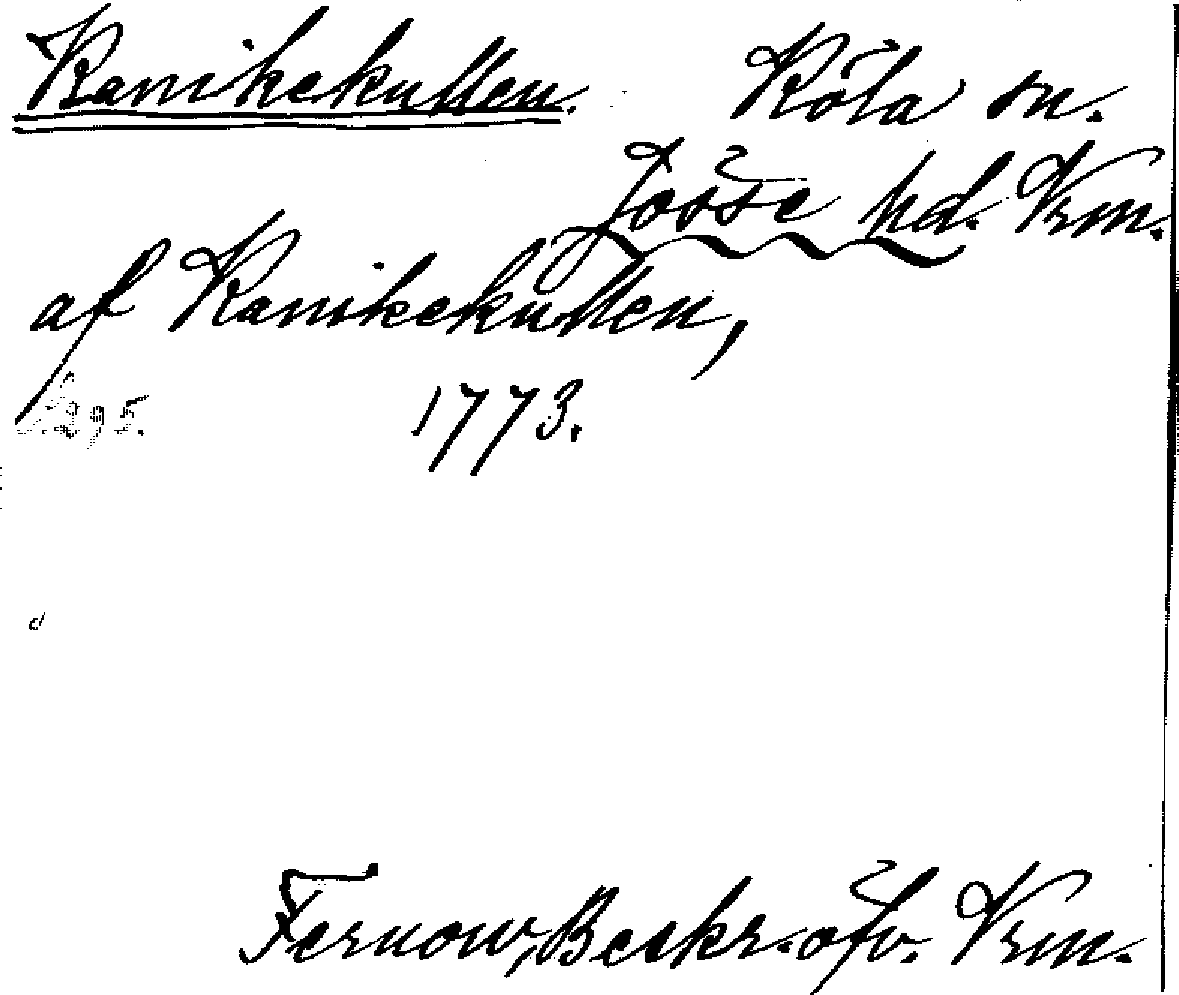 Kanikekullen. Köla sn.
Jösse hd. Vrm.
af Kanikekullen,
s. 295. 1773.
d
Fernow, Beskr. öfv. Vrm.